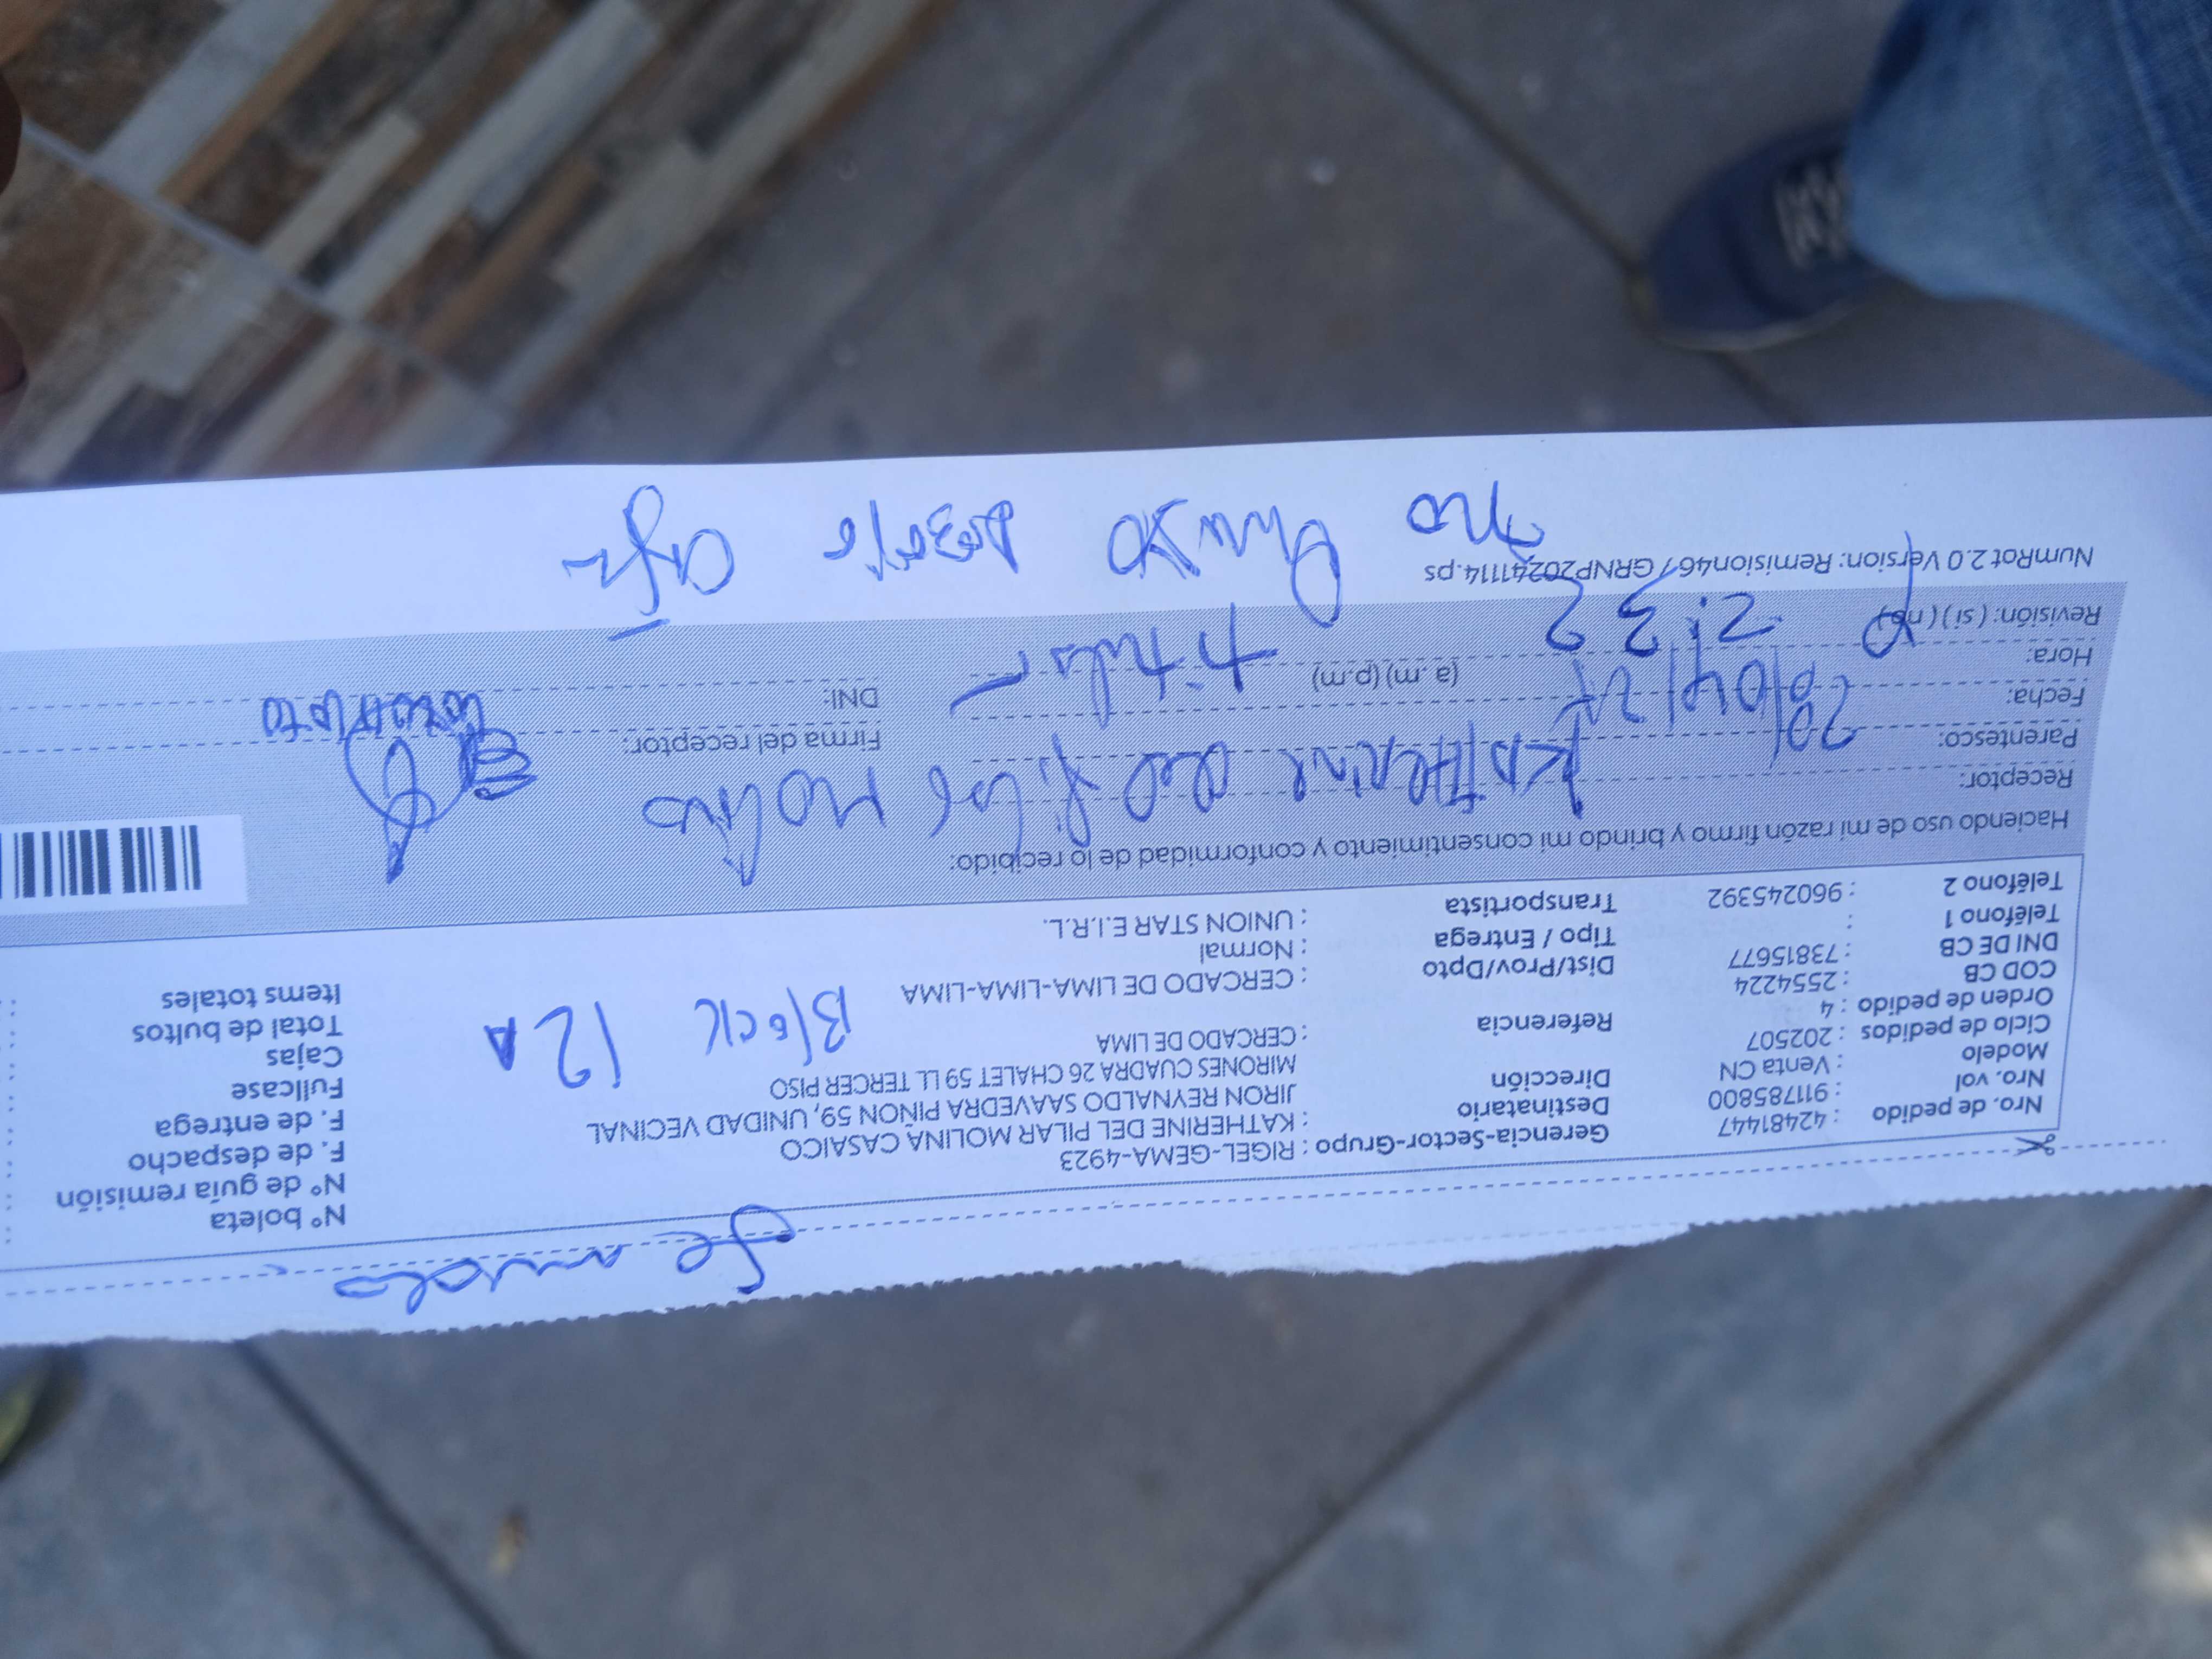 Se mudo
Nro. de pedido : 42481447
Nro. vol : 911785800
Modelo : Venta CN
Ciclo de pedidos : 202507
Orden de pedido : 4
COD CB : 2554224
DNI DE CB : 73815677
Teléfono 1 :
Teléfono 2 : 960245392
Gerencia-Sector-Grupo : RIGEL-GEMA-4923
Destinatario : KATHERINE DEL PILAR MOLINA CASAICO
Dirección JIRON REYNALDO SAAVEDRA PIÑON 59, UNIDAD VECINAL
MIRONES CUADRA 26 CHALET 59 LL TERCER PISO
: CERCADO DE LIMA
Referencia
Block 12A
Dist/Prov/Dpto : CERCADO DE LIMA-LIMA-LIMA
Tipo / Entrega : Normal
Transportista : UNION STAR E.I.R.L.
N° boleta :
N° de guía remisión :
F. de despacho :
F. de entrega :
Fullcase :
Cajas :
Total de bultos :
Items totales :
Haciendo uso de mi razón firmo y brindo mi consentimiento y conformidad de lo recibido:
Receptor: Katherine del Pilar Molina
Parentesco: titular
Firma del receptor:
Fecha:
Hora: (a.m) (p.m) 2:32
DNI:
Revisión: ( si ) ( no )
NumRot 2.0 Version: Remision467GRNP20241114.ps
no